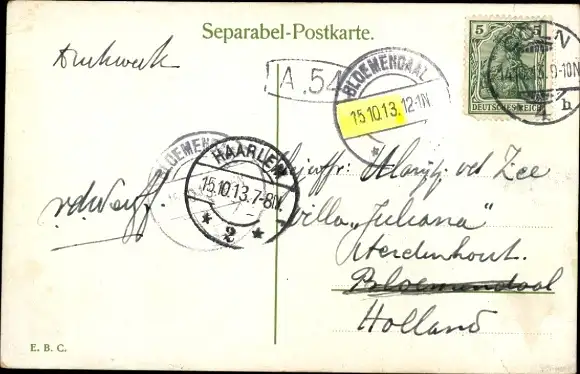 Separabel-Postkarte.
Drukwerk
A.54
BLOEMENDAAL
15.10.13. 12-1N.
5 5
DEUTSCHES REICH
CÖLN
1h
BLOEMENDAAL
HAARLEM
15.10.13.7-8N.
2
villa „Juliana"
Aerdenhout.
Bloemendaal
Holland
E. B. C.